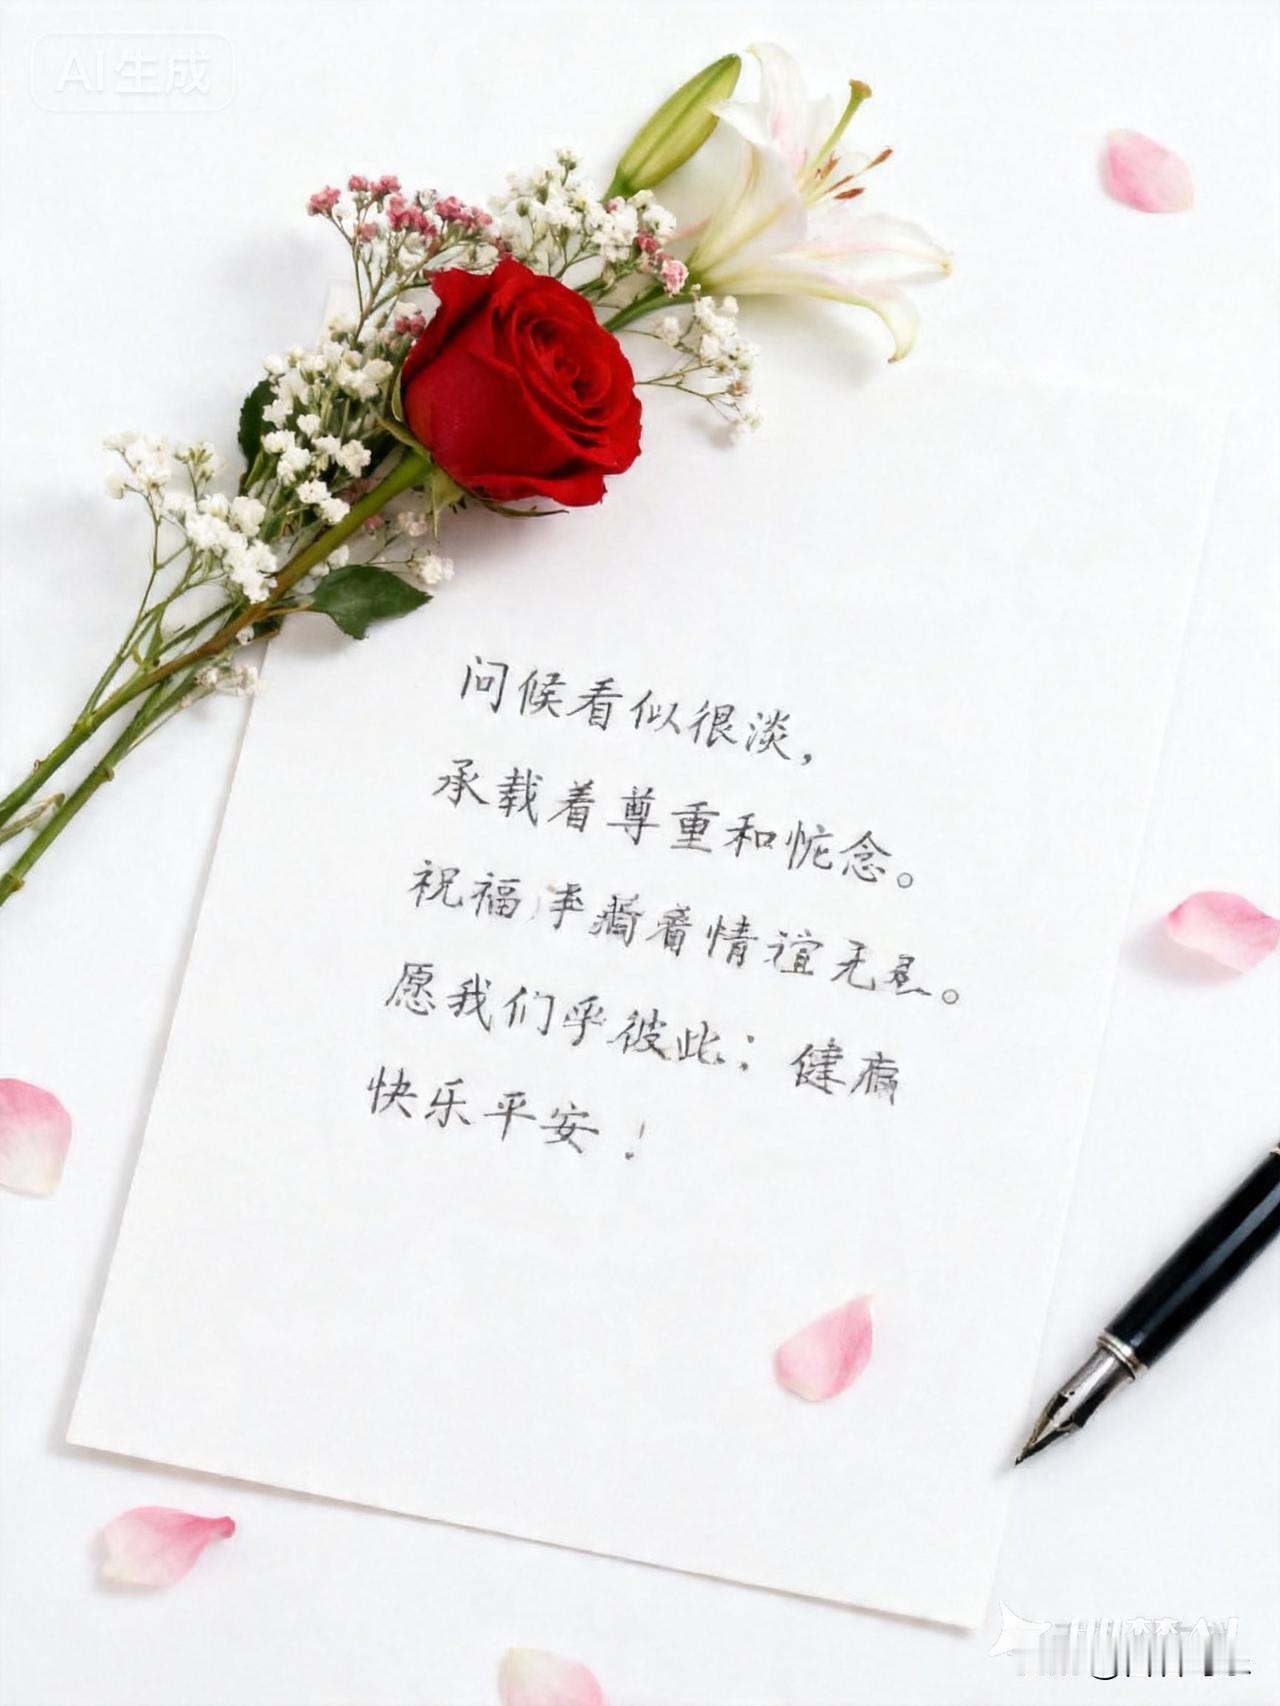 AI生成
问候看似很淡，
承载着尊重和惦念。
祝福 着情谊无
愿我们乎彼此：健
快乐平安！